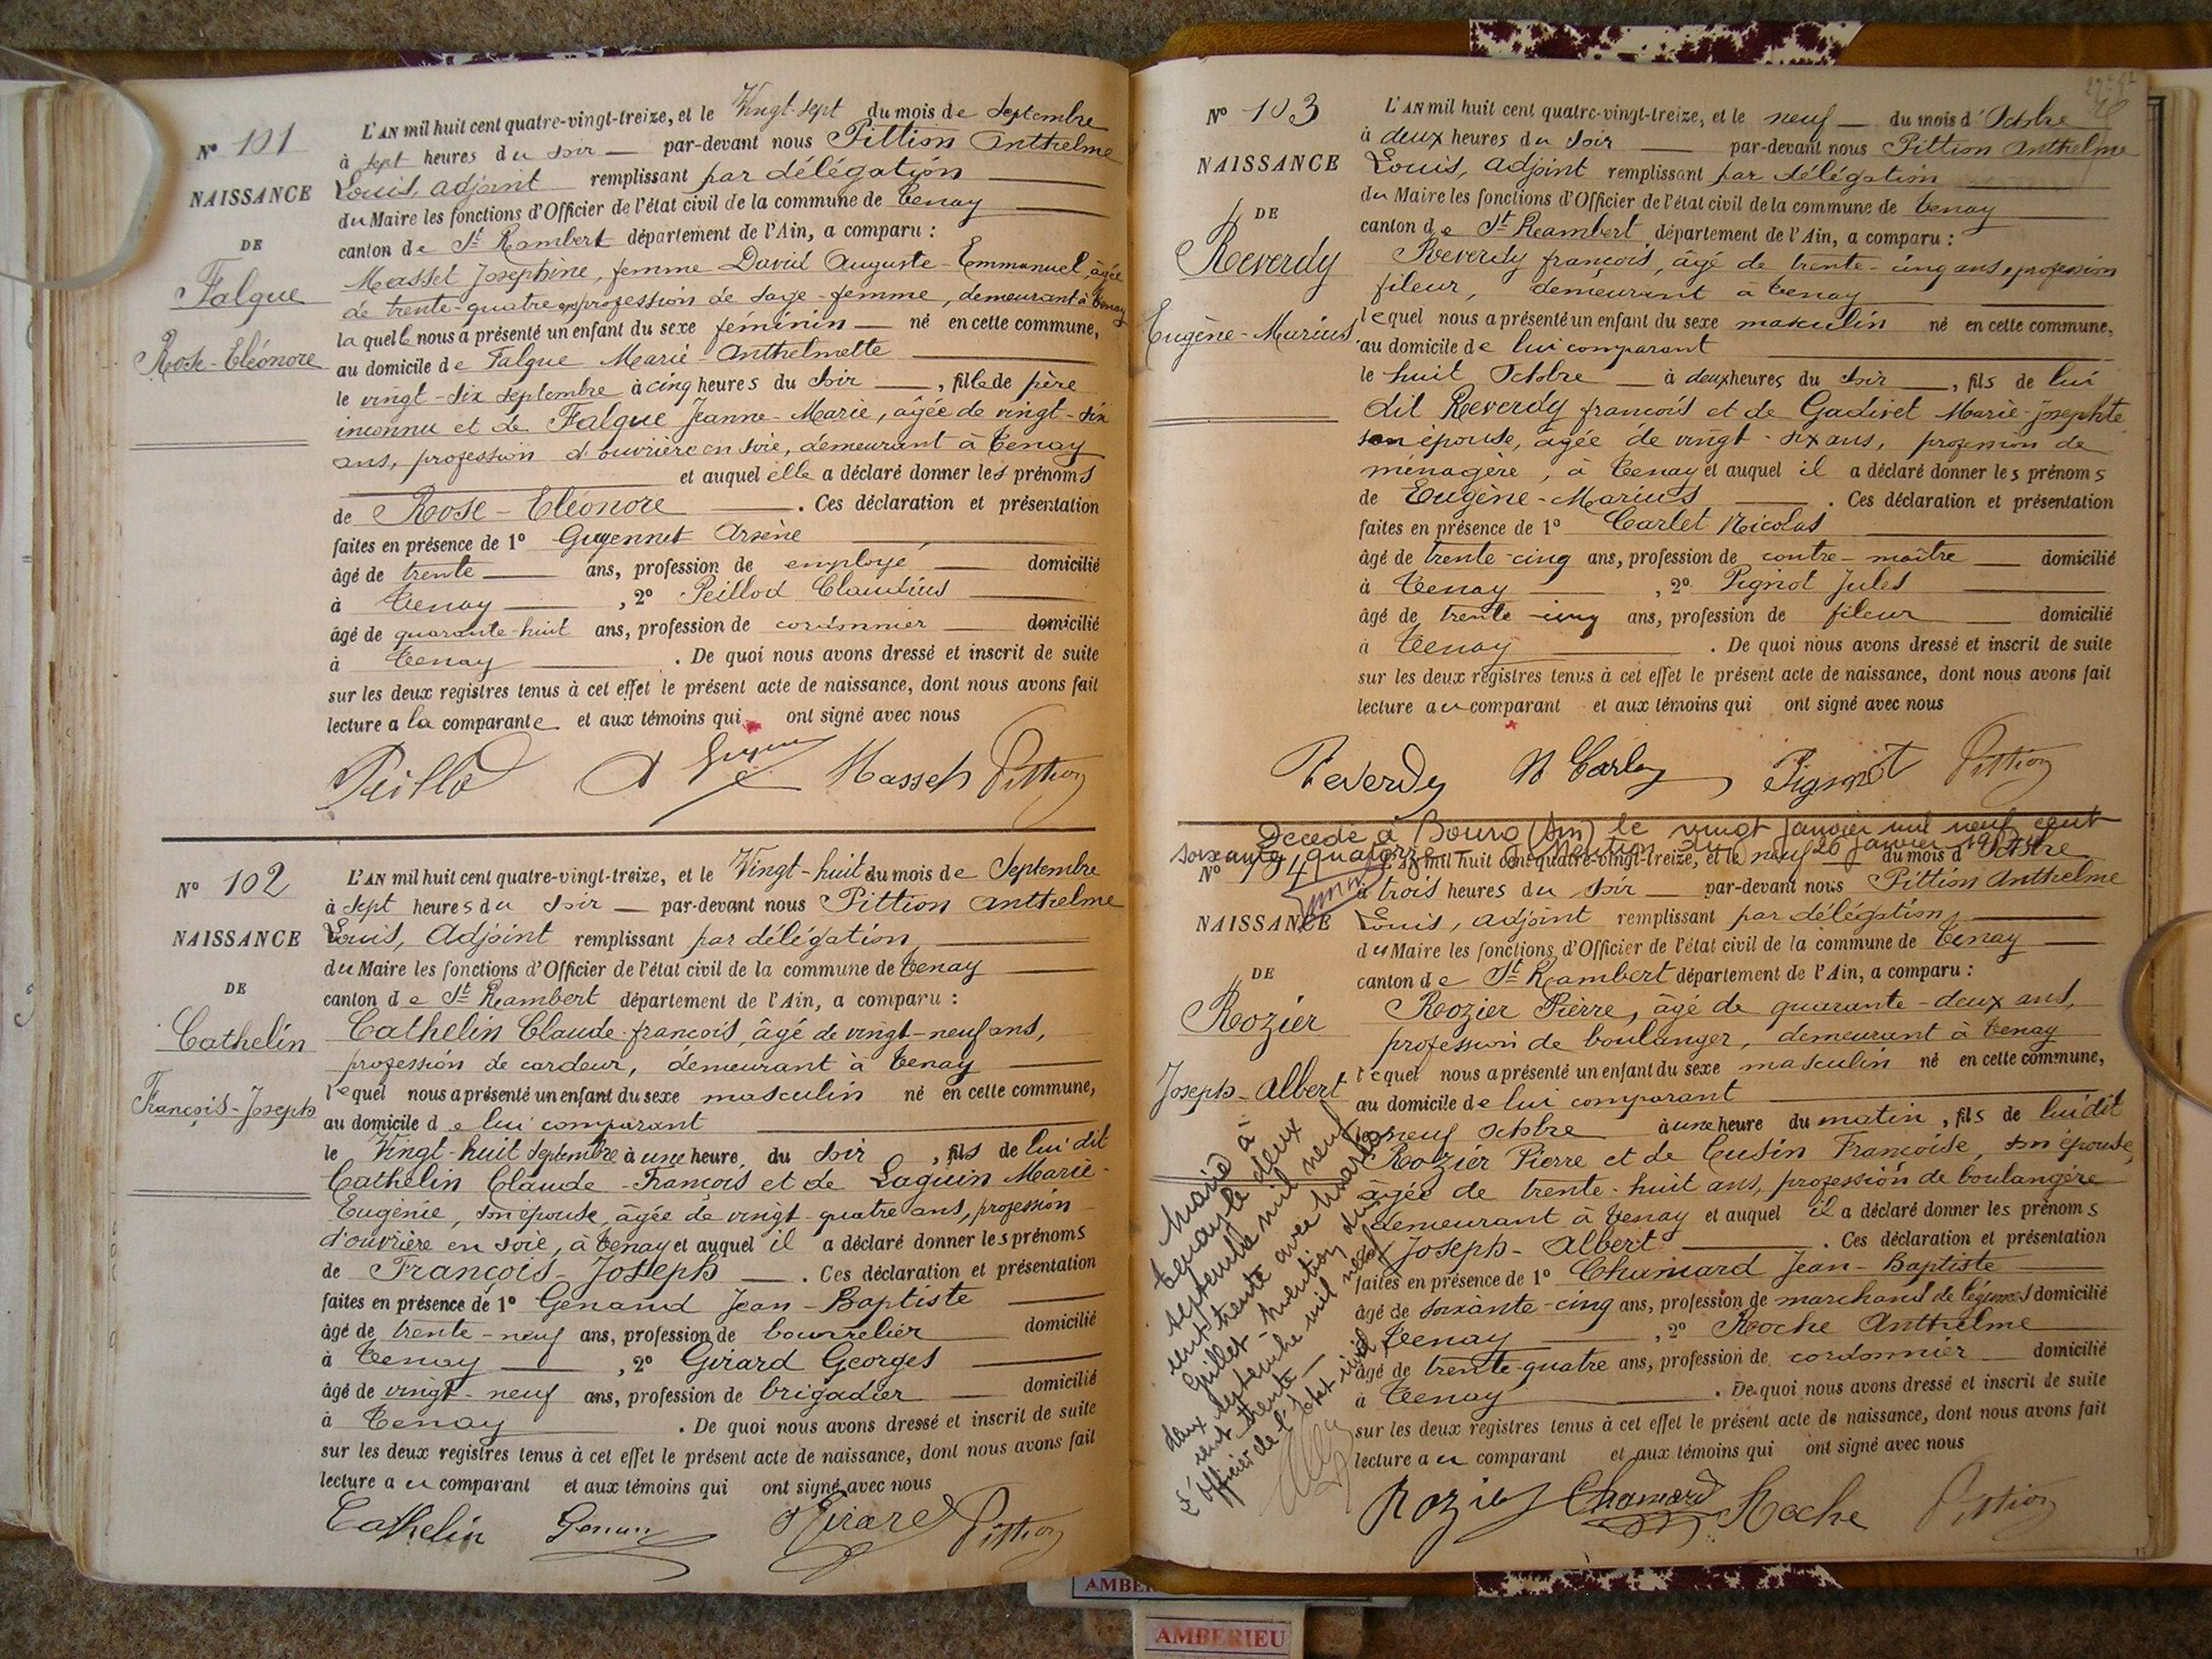 N° 101
NAISSANCE
DE
Falgue
Rose-Eléonore
L'AN mil huit cent quatre-vingt-treize, et le Vingt-sept du mois de Septembre
à sept heures du soir — par-devant nous Pittion Anthelme
Louis, adjoint remplissant par délégation
du Maire les fonctions d'Officier de l'état civil de la commune de Tenay
canton de St Rambert département de l'Ain, a comparu :
Masset Joséphine, femme David Auguste-Emmanuel, âgée
de trente-quatre ans profession de sage-femme, demeurant à Tenay
laquelle nous a présenté un enfant du sexe féminin — né en cette commune,
au domicile de Falgue Marie-Anthelmette
le vingt-six septembre à cinq heures du soir —, fille de père
inconnu et de Falgue Jeanne-Marie, âgée de vingt-six
ans, profession d'ouvrière en soie, demeurant à Tenay
et auquel elle a déclaré donner les prénoms
de Rose-Eléonore — . Ces déclaration et présentation
faites en présence de 1° Guyennet Arsène
âgé de trente — ans, profession de employé — domicilié
à Tenay — , 2° Peillod Claudius
âgé de quarante-huit ans, profession de cordonnier — domicilié
à Tenay — . De quoi nous avons dressé et inscrit de suite
sur les deux registres tenus à cet effet le présent acte de naissance, dont nous avons fait
lecture a la comparante et aux témoins qui ont signé avec nous
Peillod Masset Pittion
N° 102
NAISSANCE
DE
Cathelin
François-Joseph
L'AN mil huit cent quatre-vingt-treize, et le Vingt-huit du mois de Septembre
à sept heures du soir — par-devant nous Pittion Anthelme
Louis, Adjoint remplissant par délégation
du Maire les fonctions d'Officier de l'état civil de la commune de Tenay
canton de St Rambert département de l'Ain, a comparu :
Cathelin Claude-françois, âgé de vingt-neuf ans,
profession de cardeur, demeurant à Tenay
lequel nous a présenté un enfant du sexe masculin né en cette commune,
au domicile de lui comparant
le Vingt-huit Septembre à une heure du soir , fils de lui dit
Cathelin Claude-François et de Laguin Marie-
Eugénie, son épouse, âgée de vingt-quatre ans, profession
d'ouvrière en soie, à Tenay et auquel il a déclaré donner les prénoms
de François-Joseph — . Ces déclaration et présentation
faites en présence de 1° Genand Jean-Baptiste
âgé de trente-neuf ans, profession de bourrelier domicilié
à Tenay — , 2° Girard Georges
âgé de vingt-neuf ans, profession de brigadier — domicilié
à Tenay . De quoi nous avons dressé et inscrit de suite
sur les deux registres tenus à cet effet le présent acte de naissance, dont nous avons fait
lecture au comparant et aux témoins qui ont signé avec nous
Cathelin Genand Girard Pittion
N° 103
NAISSANCE
DE
Reverdy
Eugène-Marius
L'AN mil huit cent quatre-vingt-treize, et le neuf — du mois d'Octobre
à deux heures du soir — par-devant nous Pittion Anthelme
Louis, Adjoint remplissant par délégation
du Maire les fonctions d'Officier de l'état civil de la commune de Tenay
canton de St Rambert département de l'Ain, a comparu :
Reverdy françois, âgé de trente-cinq ans, profession
fileur, demeurant à Tenay
lequel nous a présenté un enfant du sexe masculin né en cette commune,
au domicile de lui comparant
le huit Octobre — à deux heures du soir —, fils de lui
dit Reverdy françois et de Gadivet Marie-Josephte
son épouse, âgée de vingt-six ans, profession de
ménagère, à Tenay et auquel il a déclaré donner les prénoms
de Eugène-Marius — . Ces déclaration et présentation
faites en présence de 1° Carlet Nicolas
âgé de trente-cinq ans, profession de contre-maître — domicilié
à Tenay — , 2° Pignot Jules
âgé de trente-cinq ans, profession de fileur — domicilié
à Tenay — . De quoi nous avons dressé et inscrit de suite
sur les deux registres tenus à cet effet le présent acte de naissance, dont nous avons fait
lecture au comparant et aux témoins qui ont signé avec nous
Reverdy N Carlet Pignot Pittion
Décédé à Bourg (Ain) le vingt janvier mil neuf cent
soixante quatorze — Mention du 26 janvier 1974
N° 104
NAISSANCE
DE
Rozier
Joseph-Albert
L'AN mil huit cent quatre-vingt-treize, et le neuf du mois d'Octobre
à trois heures du soir — par-devant nous Pittion Anthelme
Louis, adjoint remplissant par délégation
du Maire les fonctions d'Officier de l'état civil de la commune de Tenay
canton de St Rambert département de l'Ain, a comparu :
Rozier Pierre, âgé de quarante-deux ans,
profession de boulanger, demeurant à Tenay
lequel nous a présenté un enfant du sexe masculin né en cette commune,
au domicile de lui comparant
le neuf octobre à une heure du matin , fils de lui dit
Rozier Pierre et de Cusin Françoise, son épouse,
âgée de trente-huit ans, profession de boulangère
demeurant à Tenay et auquel il a déclaré donner les prénoms
Joseph-Albert — . Ces déclaration et présentation
faites en présence de 1° Chamard Jean-Baptiste
âgé de soixante-cinq ans, profession de marchand de légumes domicilié
à Tenay — , 2° Roche Anthelme
âgé de trente-quatre ans, profession de cordonnier domicilié
à Tenay . De quoi nous avons dressé et inscrit de suite
sur les deux registres tenus à cet effet le présent acte de naissance, dont nous avons fait
lecture au comparant et aux témoins qui ont signé avec nous
Rozier Chamard Roche Pittion
Marié à
Tenay le deux
septembre mil neuf
cent trente avec
Grillet - mention du
deux septembre mil neuf
cent trente —
L'officier de l'état civil
AMBERIEU